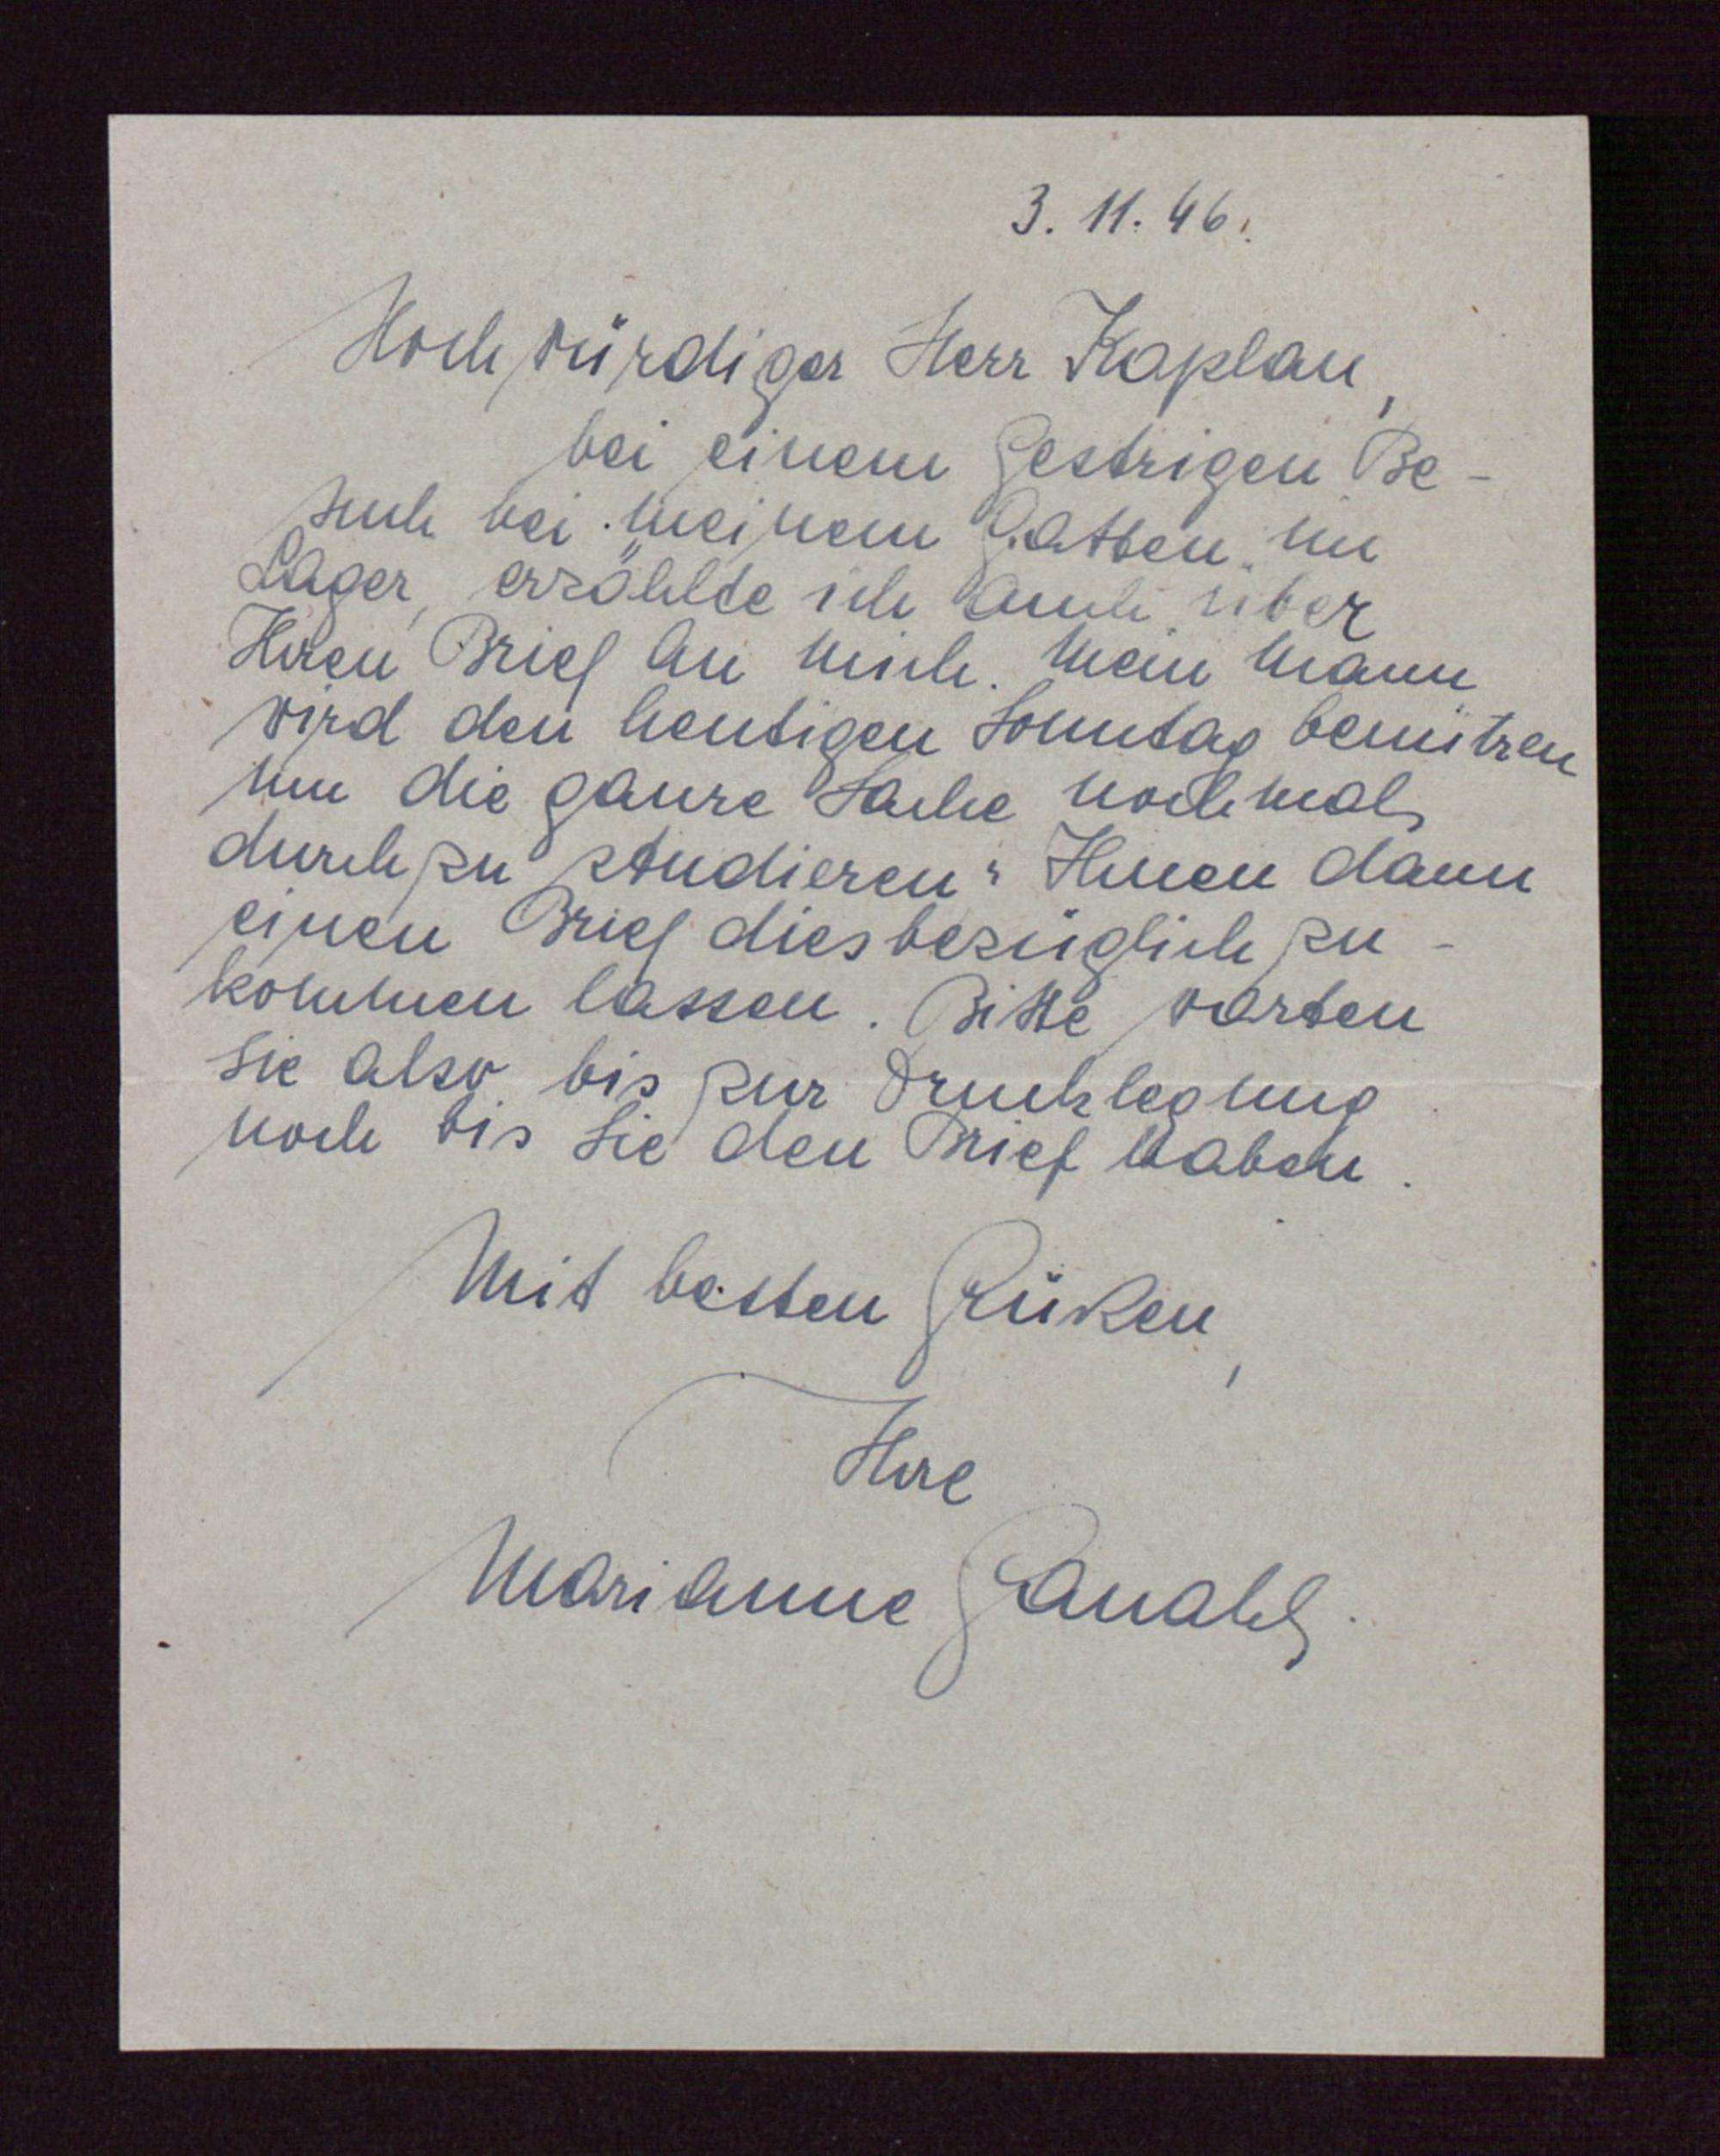 3. 11. 46.
Hochwürdiger Herr Kaplan,
bei einem gestrigen Be-
such bei meinem Gatten im
Lager, erzählte ich auch über
Ihren Brief an mich. Mein Mann
wird den heutigen Sonntag benützen
um die ganze Sache nochmals
durchzustudieren u. Ihnen dann
einen Brief diesbezüglich zu-
kommen lassen. Bitte warten
Sie also bis zur Drucklegung
noch bis Sie den Brief haben.
Mit besten Grüßen,
Ihre
Marianne Ganahl.